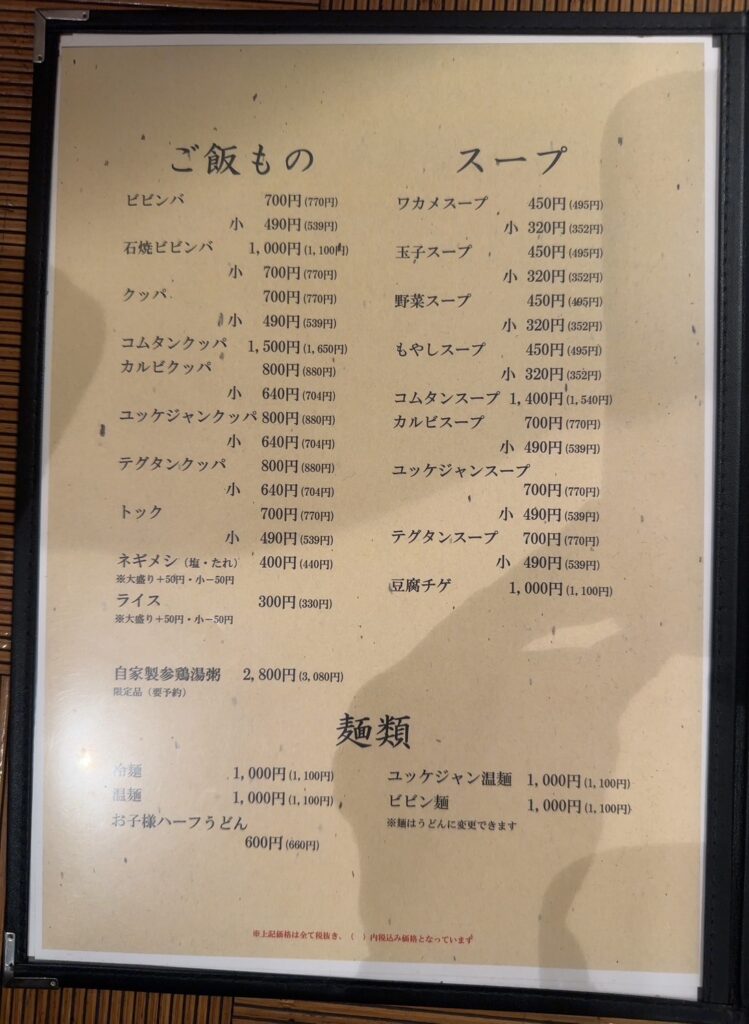 ご飯もの
ビビンバ 700円(770円)
小 490円(539円)
石焼ビビンバ 1,000円(1,100円)
小 700円(770円)
クッパ 700円(770円)
小 490円(539円)
コムタンクッパ 1,500円(1,650円)
カルビクッパ 800円(880円)
小 640円(704円)
ユッケジャンクッパ 800円(880円)
小 640円(704円)
テグタンクッパ 800円(880円)
小 640円(704円)
トック 700円(770円)
小 490円(539円)
ネギメシ（塩・たれ） 400円(440円)
※大盛り＋50円・小－50円
ライス 300円(330円)
※大盛り＋50円・小－50円
自家製参鶏湯粥 2,800円(3,080円)
限定品（要予約）
スープ
ワカメスープ 450円(495円)
小 320円(352円)
玉子スープ 450円(495円)
小 320円(352円)
野菜スープ 450円(495円)
小 320円(352円)
もやしスープ 450円(495円)
小 320円(352円)
コムタンスープ 1,400円(1,540円)
カルビスープ 700円(770円)
小 490円(539円)
ユッケジャンスープ
700円(770円)
小 490円(539円)
テグタンスープ 700円(770円)
小 490円(539円)
豆腐チゲ 1,000円(1,100円)
麺類
冷麺 1,000円(1,100円)
温麺 1,000円(1,100円)
お子様ハーフうどん
600円(660円)
ユッケジャン温麺 1,000円(1,100円)
ビビン麺 1,000円(1,100円)
※麺はうどんに変更できます
※上記価格は全て税抜き、（　）内税込み価格となっています